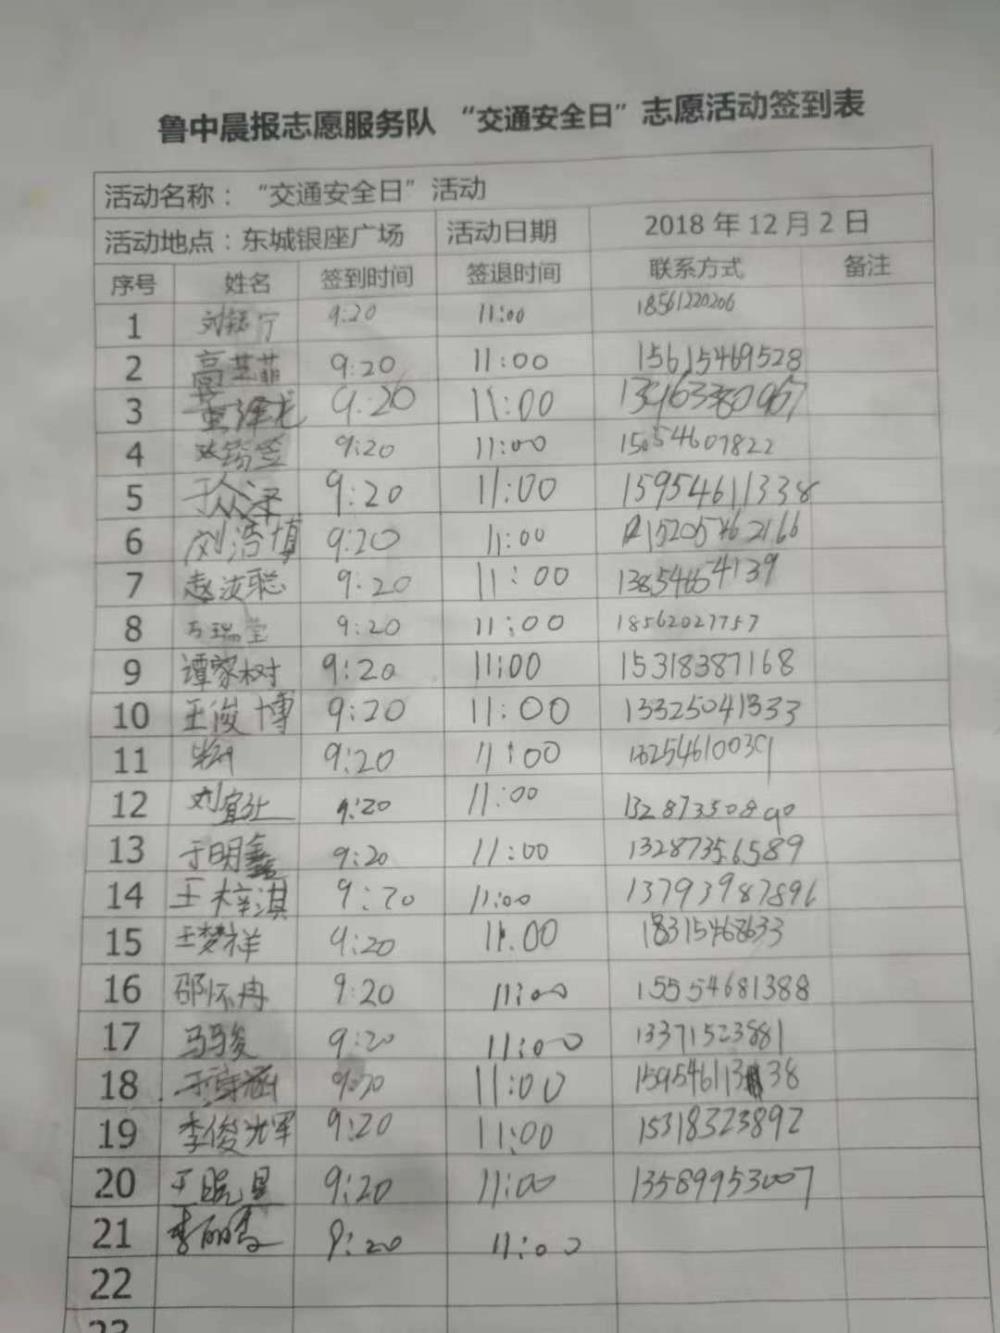 鲁中晨报志愿服务队 “交通安全日”志愿活动签到表
活动名称：“交通安全日”活动
活动地点：东城银座广场 活动日期 2018 年 12 月 2 日
序号 姓名 签到时间 签退时间 联系方式 备注
1 9:20 11:00 18561220206
2 高芝菲 9:20 11:00 15615469528
3 9:20 11:00
4 9:20 11:00 15054607822
5 9:20 11:00 15954611338
6 刘浩博 9:20 11:00 15205462166
7 赵汝聪 9:20 11:00 13854654139
8 9:20 11:00 18562027757
9 谭家树 9:20 11:00 15318387168
10 王俊博 9:20 11:00 13325041333
11 9:20 11:00
12 9:20 11:00 13287350890
13 于明鑫 9:20 11:00 13287356589
14 王梓淇 9:20 11:00 13793987896
15 王梦祥 9:20 11:00 18315468633
16 邵怀冉 9:20 11:00 15554681388
17 马骏 9:20 11:00 13371523881
18 于诗涵 9:20 11:00
19 李俊光军 9:20 11:00 15318323892
20 9:20 11:00 13589953007
21 9:20 11:00
22
23